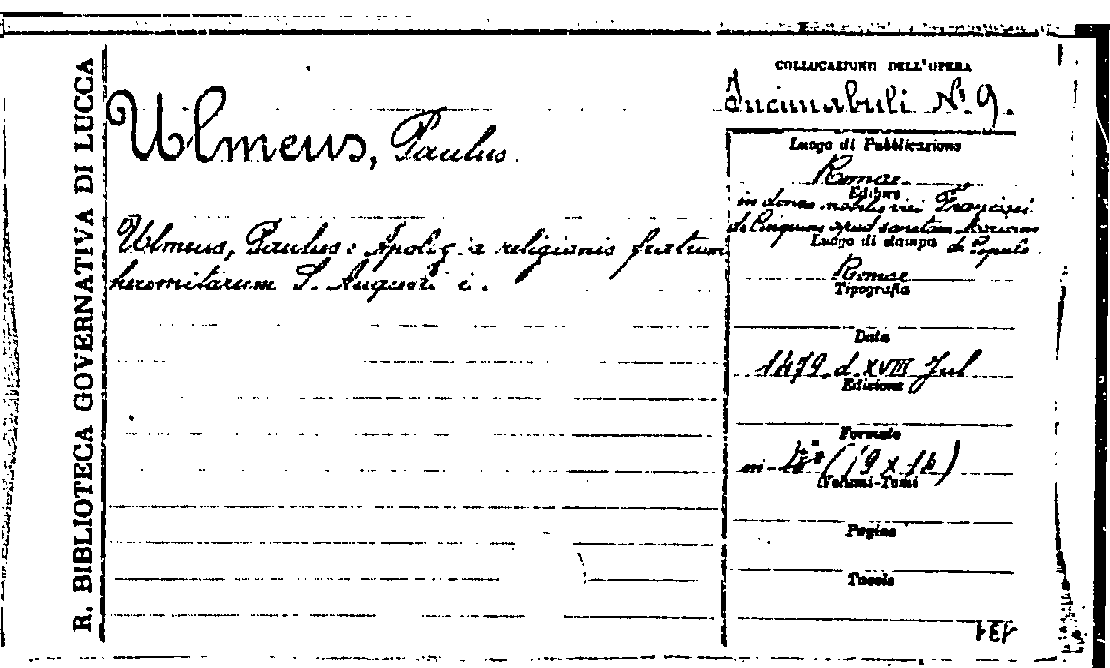 R. BIBLIOTECA GOVERNATIVA DI LUCCA
Ulmeus, Paulus.
Ulmeus, Paulus: Apolog a religionis fratrum
heremitarum S. Augusti i.
COLLOCAZIONE DELL'OPERA
Incunabuli N. 9.
Luogo di Pubblicazione
Romae
Editore
in domo nobilis viri Francisci
de Cinquinis apud sanctam Mariam
de Populo
Luogo di stampa
Romae
Tipografia
Data
1479 d. XVIII Jul
Edizione
Formato
in-4° (19 x 14)
Volumi-Tomi
Pagine
Tavole